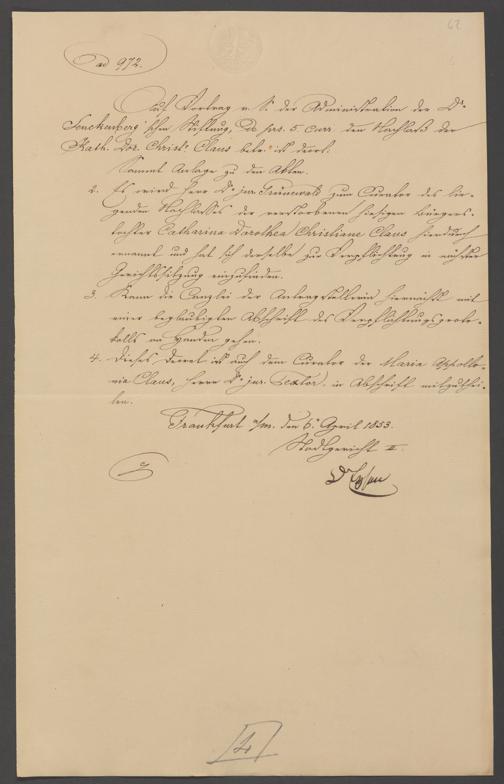 62
ad 972.
Auf Vortrag v. S. der Administration der Dr
Senckenberg'schen Stiftung, de prs. 5. curr. den Nachlaß der
Kath. Dor. Christ. Claus betr. ist decret.
Kommt Anlage zu den Akten.
2. Es wird Herr Dr jur. Grünewald zum Curator des lie-
genden Nachlasses der verstorbenen hiesigen Bürgers-
tochter Catharina Dorothea Christiane Claus hierdurch
ernannt und hat sich derselbe zur Verpflichtung in nächster
Gerichtssitzung einzufinden.
3. Kann die Canzlei der Antragstellerin hiernächst mit
einer beglaubigten Abschrift des Verpflichtungsproto-
kolls an Handen gehen.
4. Dieses Decret ist auch dem Curator der Maria Appollo-
nia Claus, Herrn Dr jur. Textor in Abschrift mitzuthei-
len.
Frankfurt a/m. den 6. April 1853.
Stadtgericht II.
Dr